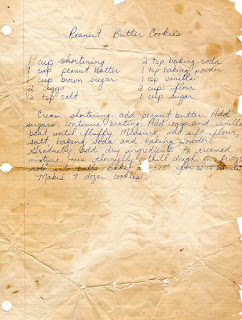 Peanut Butter Cookies
1 cup shortening 2 tsp baking soda
1 cup peanut butter 1 tsp baking powder
1 cup brown sugar 1 tsp vanilla
2 eggs 3 cup flour
1/2 tsp salt 1 cup sugar
Cream shortening, add peanut butter. Add
sugars, continue beating. Add eggs and vanilla
beat until fluffy. Measure and sift flour,
salt, baking soda and baking powder.
Gradually add dry ingredient to creamed
mixture, mix thoroughly. Chill dough in fridge
roll into balls. Bake at 375° for minutes
Makes 7 dozen cookies.